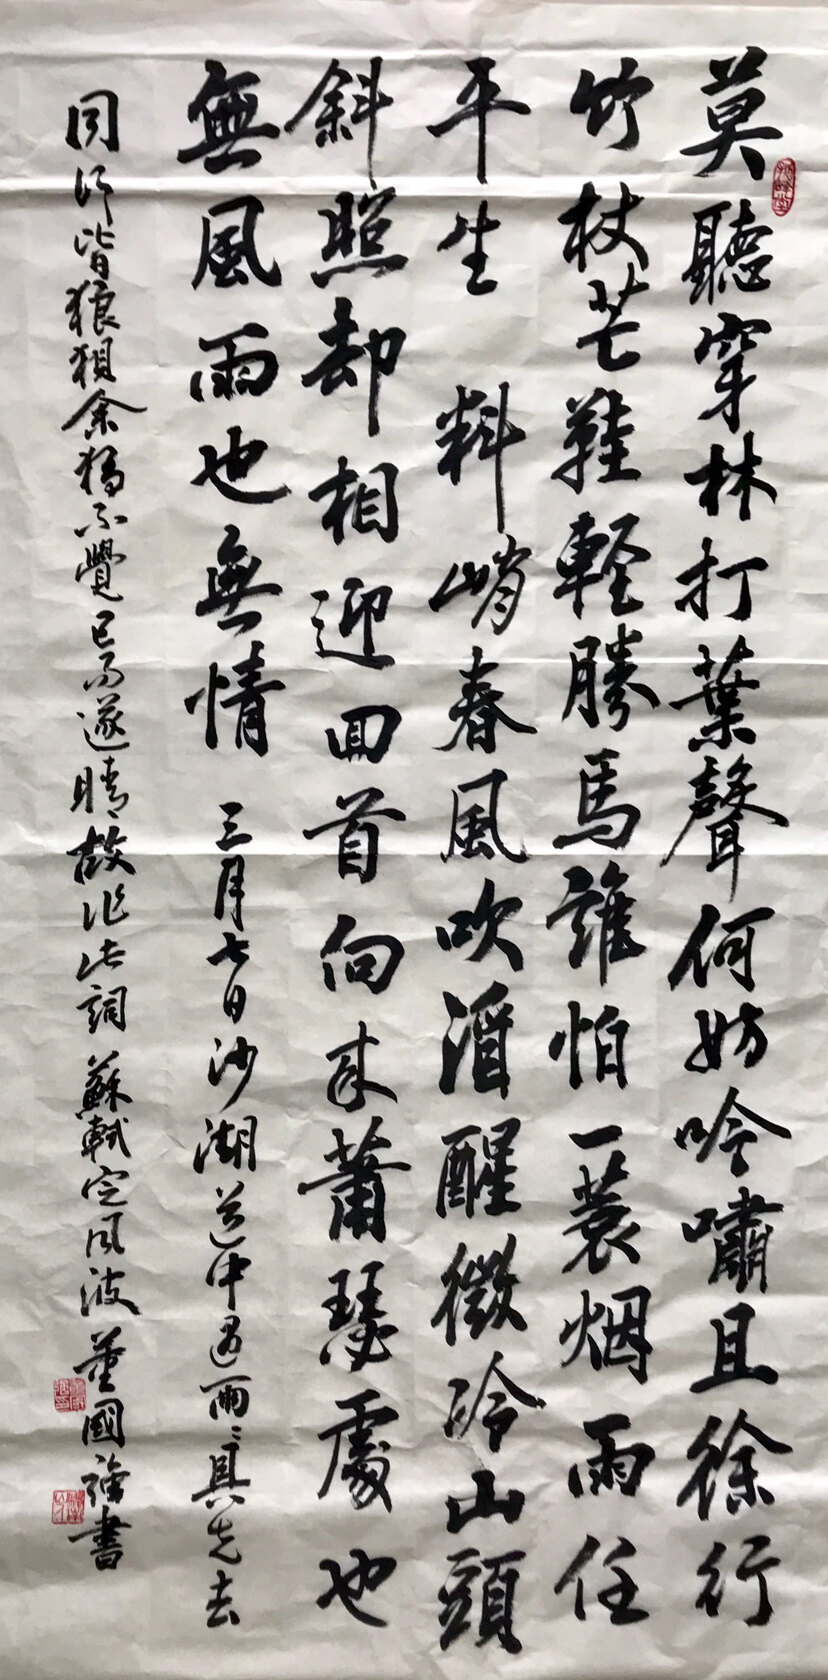 莫聽穿林打葉聲何妨吟嘯且徐行
竹杖芒鞋輕勝馬誰怕一蓑烟雨任
平生料峭春風吹酒醒微冷山頭
斜照却相迎回首向来蕭瑟處也
無風雨也無情三月七日沙湖道中遇雨雨具先去
同行皆狼狽余獨不覺已而遂晴故作此詞蘇軾定風波董國強書